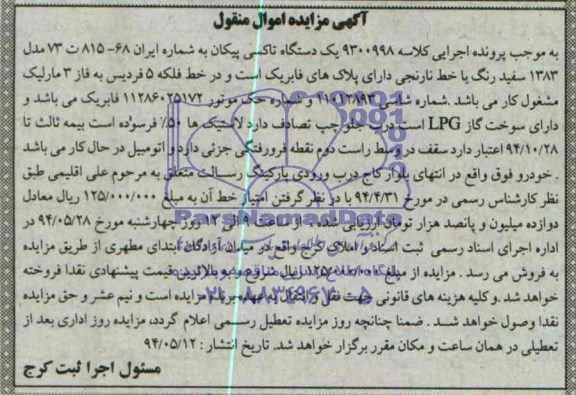 آگهی مزایده اموال منقول
به موجب پرونده اجرایی کلاسه ۹۳۰۰۹۹۸ یک دستگاه تاکسی پیکان به شماره ایران ۶۸- ۸۱۵ ت ۷۳ مدل
۱۳۸۳ سفید رنگ یا خط نارنجی دارای پلاک های فابریک است و در خط فلکه ۵ فردیس به فاز ۳ مارلیک
مشغول کار می باشد .شماره شاسی و شماره حک موتور ۱۱۲۸۶۰۲۵۱۷۲ فابریک می باشد و
دارای سوخت گاز LPG است درب جلو چپ تصادف دارد لاستیک ها ۵۰٪ فرسوده است بیمه ثالث تا
۹۴/۱۰/۲۸ اعتبار دارد سقف در وسط راست دوم نقطه فرورفتگی جزئی دارد و اتومبیل در حال کار می باشد
. خودرو فوق واقع در انتهای بلوار کاج درب ورودی پارکینگ رسالت متعلق به مرحوم علی اقلیمی طبق
نظر کارشناس رسمی در مورخ ۹۴/۴/۳۱ با در نظر گرفتن امتیاز خط آن به مبلغ ۱۲۵/۰۰۰/۰۰۰ ریال معادل
دوازده میلیون و پانصد هزار تومان ارزیابی شده . از ساعت ۹ الی ۱۲ روز چهارشنبه مورخ ۹۴/۰۵/۲۸ در
اداره اجرای اسناد رسمی ثبت اسناد و املاک کرج واقع در میدان آزادگان ابتدای مطهری از طریق مزایده
به فروش می رسد . مزایده از مبلغ ریال شروع و به بالاترین قیمت پیشنهادی نقدا فروخته
خواهد شد .و کلیه هزینه های قانونی جهت نقل و انتقال به عهده برنده مزایده است و نیم عشر و حق مزایده
نقدا وصول خواهد شد . ضمنا چنانچه روز مزایده تعطیل رسمی اعلام گردد، مزایده روز اداری بعد از
تعطیلی در همان ساعت و مکان مقرر برگزار خواهد شد. تاریخ انتشار : ۹۴/۰۵/۱۲
مسئول اجرا ثبت کرج
ParsNamadData